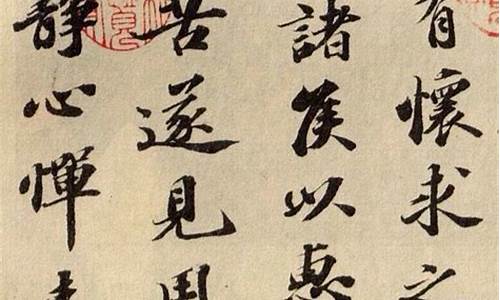 有懷求之
諸侯以惠
苦遂見用
靜心憚